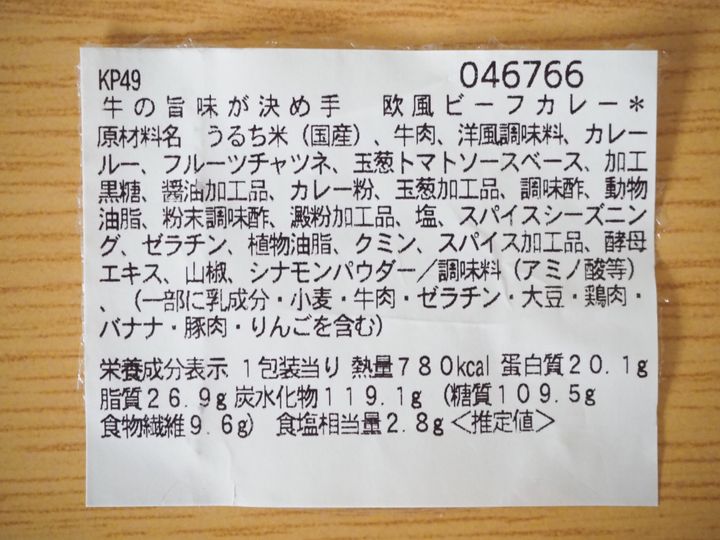 KP49 046766
牛の旨味が決め手 欧風ビーフカレー＊
原材料名 うるち米（国産）、牛肉、洋風調味料、カレー
ルー、フルーツチャツネ、玉葱トマトソースベース、加工
黒糖、醤油加工品、カレー粉、玉葱加工品、調味酢、動物
油脂、粉末調味酢、澱粉加工品、塩、スパイスシーズニン
グ、ゼラチン、植物油脂、クミン、スパイス加工品、酵母
エキス、山椒、シナモンパウダー／調味料（アミノ酸等）
、（一部に乳成分・小麦・牛肉・ゼラチン・大豆・鶏肉・
バナナ・豚肉・りんごを含む）
栄養成分表示 １包装当り 熱量７８０kcal 蛋白質２０.１g
脂質２６.９g 炭水化物１１９.１g （糖質１０９.５g
食物繊維９.６g） 食塩相当量２.８g＜推定値＞